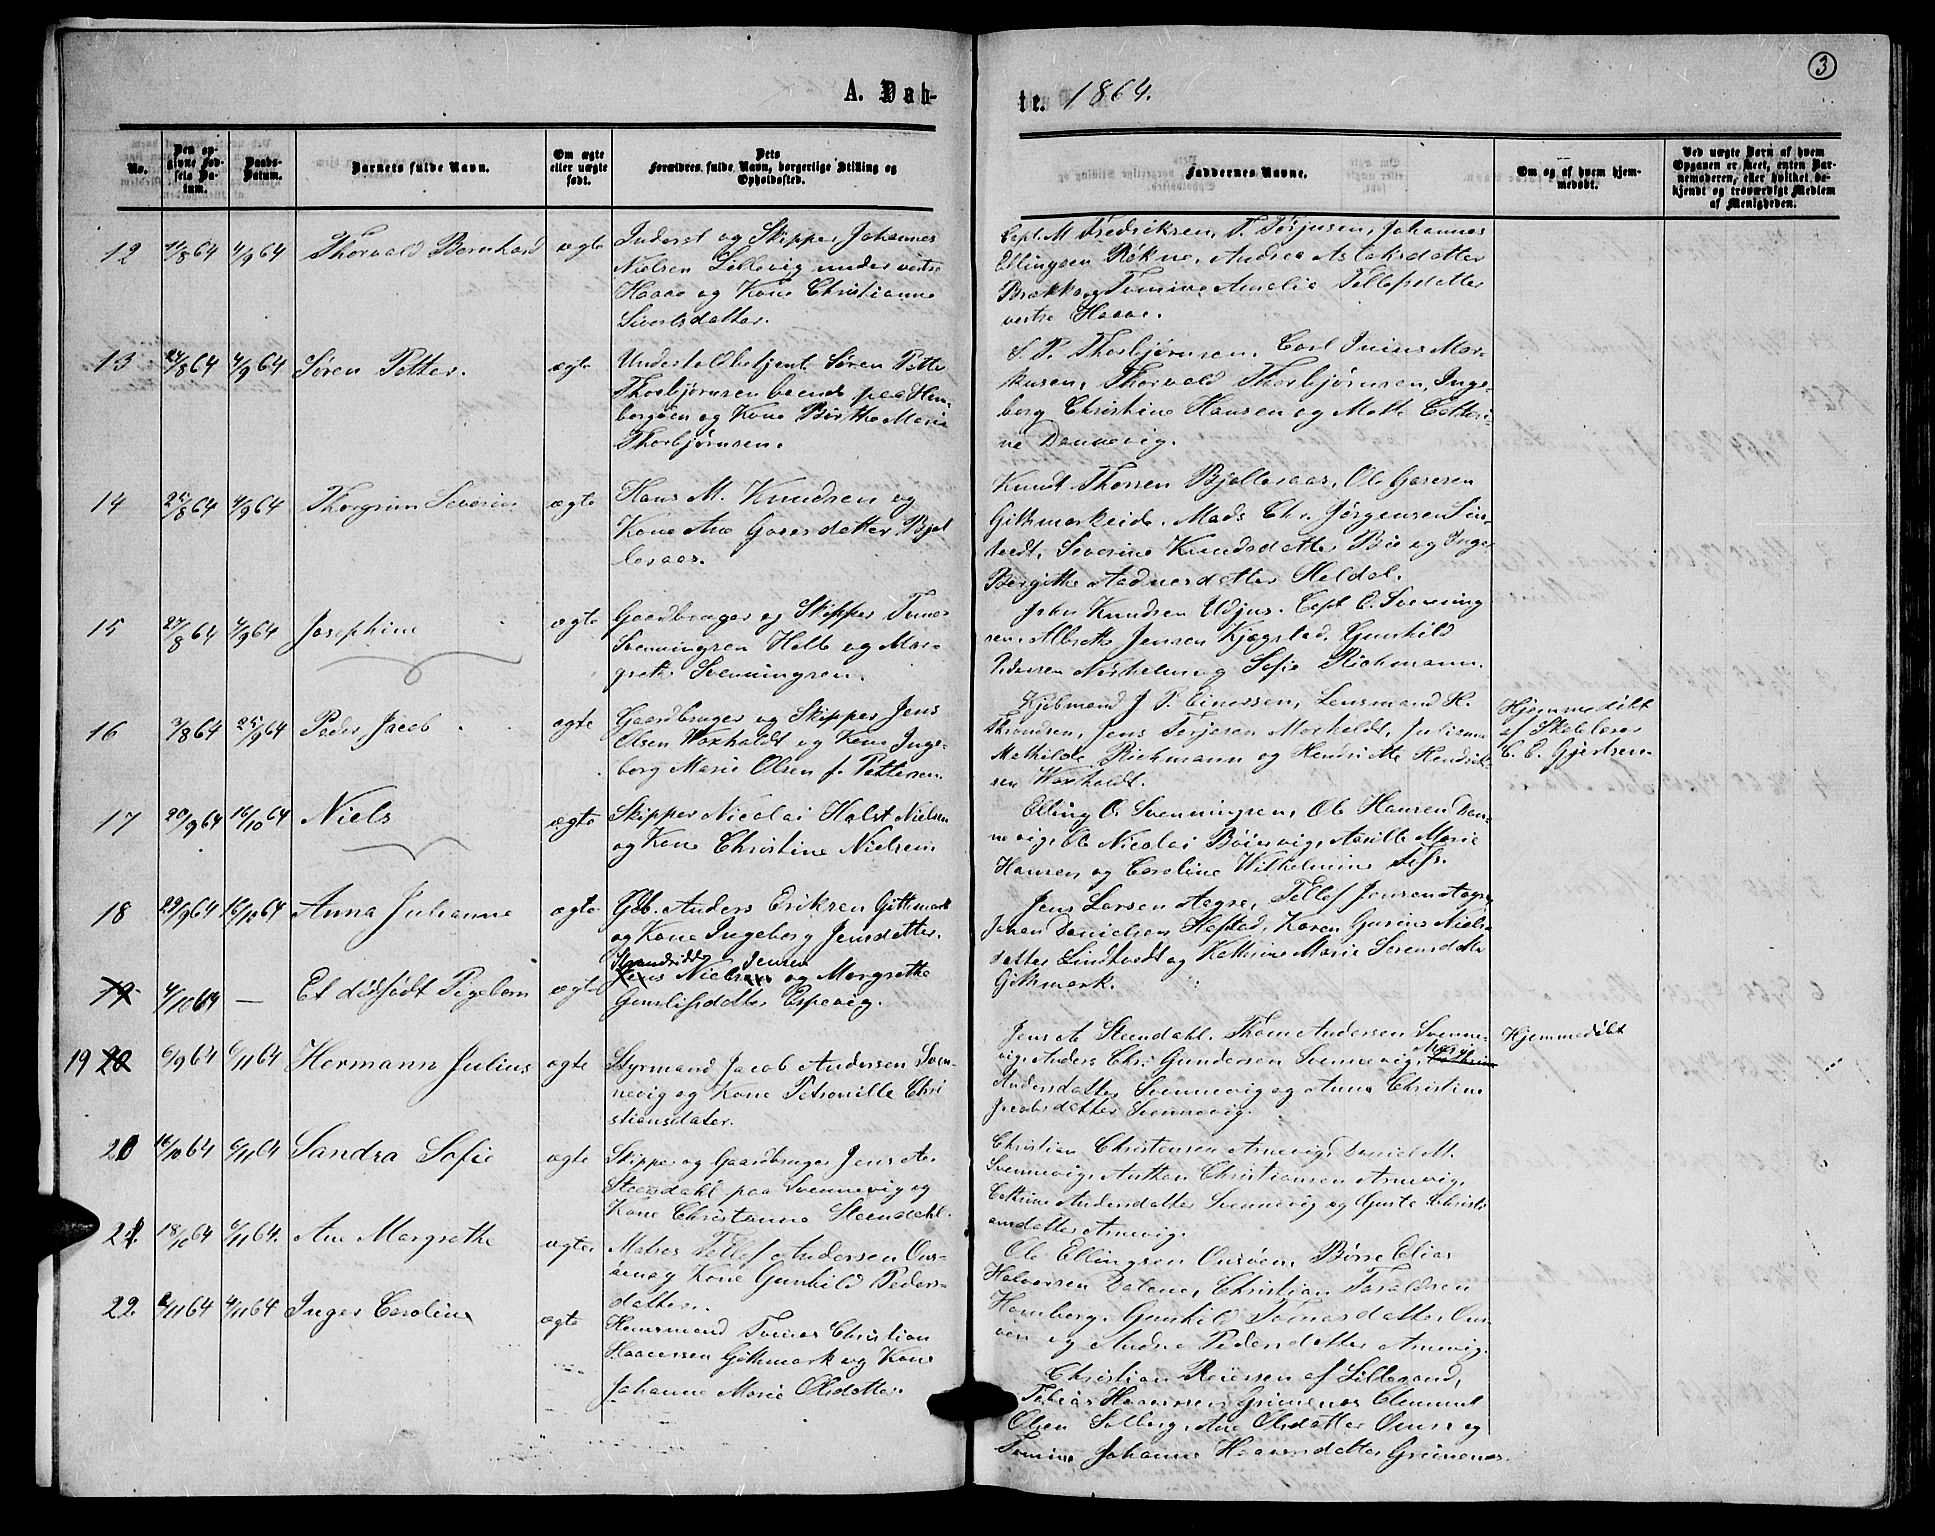 3
A. Døbte. 1864.
No.
Den opgivne Fødsels Datum.
Daabs-Datum.
Barnets fulde Navn.
Om ægte eller uægte født.
Dets Forældres fulde Navn, borgerlige Stilling og Opholdssted.
Faddernes Navne.
Om og af hvem hjemmedøbt.
Ved uægte Børn af hvem Opgaven er skeet, enten Barnemoderen, eller hvilket bekjendt og troværdigt Medlem af Menigheden.
12 11/8 64 4/9 64 Thorvald Bernhard ægte
Inderst og Skipper Johannes
Nielsen Lillevig under vestre
Haave og Kone Christianne
Sivertsdatter.
Capt. M Fredriksen, T. Terjusen, Johannes
Ellingsen Røkne, Andrea Aslaksdatter
Brække og Tomine Amalia Tellefsdatter
vestre Haave.
13 24/8 64 4/9 64 Søren Petter. ægte
Undertoldbetjent Søren Petter
Thorbjørnsen boende paa Hom-
borgøen og Kone Birthe Marie
Thorbjørnsen.
S. P. Thorbjørnsen, Carl Junius Mar-
kusen, Thorvald Thorbjørnsen, Inge-
borg Christine Hansen og Mette Cathri-
ne Dannevig.
14 25/8 64 4/9 64 Thorgrim Severin ægte
Hans M. Knudsen og
Kone Ane Goversdatter Bjel-
lesaas.
Knud Thorsen Bjellesaas, Ole Goversen
Githmarkeide, Mads Chr. Jørgensen Lin-
tvedt, Severine Knudsdatter Bie og Inger
Bergithe Aadnesdatter Heldal.
15 27/8 64 4/9 64 Josephine ægte
Gaardbruger og Skipper Tomas
Svenningsen Holte og Mar-
grethe Svenningsen.
John Knudsen Udjus, Capt. E. Svenning-
sen, Albreth Jensen Kjægstad, Gunhild
Pedersen Nørholm og Sofie Richmann.
16 3/8 64 25/9 64 Peder Jacob. ægte
Gaardbruger og Skipper Jens
Olsen Woxholdt og Kone Inge-
borg Marie Olsen f. Pettersen.
Kjøbmand J. P. Einersen, Lensmand K.
Thrandsen, Jens Terjesen Moxholdt, Julianne
Mathilde Richmann og Hendrikke Hendrik-
sen Woxholdt.
Hjemmedøbt
af Skolelærer
C. C. Gjertsen
17 20/9 64 16/10 64 Niels ægte
Skipper Nicolai Holst Nielsen
og Kone Christine Nielsen.
Elling O. Svenningsen, Ole Hansen Dan-
nevig, Ole Nicolai Bøievig, Aasille Marie
Hansen og Caroline Wilhelmine
18 29/9 64 16/10 64 Anna Julianne ægte
Gdb. Anders Eriksen Githmark
og Kone Ingeborg Jensdatter.
Jens Larsen Aagre, Tellef Jensen Aagre,
Johan Danielsen Heftad, Karen Gurine Niels-
datter Lindtvedt og Kathrine Marie Sørensdatter
Githmark.
19 4/10 64 — Et dødfødt Pigebarn ægte
Strandsidder Jensen
Jens Nielsen og Margrethe
Gunulfsdatter Espevig.
19 20 6/9 64 6/11 64 Hermann Julius ægte
Styrmand Jacob Andersen Sven-
nevig og Kone Petronille Chri-
stiansdatter.
Jens A. Steendahl, Thom Andersen Svenne-
vig, Anders Chr. Gundersen Svennevig, Maria
Andersdatter Svennevig og Anne Christine
Jacobsdatter Svennevig.
Hjemmedøbt
20 16/10 64 6/11 64 Sandra Sofie ægte
Skipper og Gaardbruger Jens A.
Steendahl paa Svennevig og
Kone Christianne Steendahl.
Christian Christensen Arnevig, Daniel M.
Svennevig, Anthon Christiansen Arnevig,
Cathrine Andersdatter Svennevig og Gusta Christi-
ansdatter Arnevig.
21 18/10 64 6/11 64. Ane Margrethe ægte
Matros Tellef Andersen Ous-
øen og Kone Gunhild Peders-
datter.
Ole Ellingsen Ousøen, Børre Elias
Halvorsen Dalene, Christian Taraldsen
Homborg, Gunhild Tomasdatter Ous-
øen og Andrea Pedersdatter Arnevig.
22 2/11 64 4/11 64 Inger Caroline ægte
Huusmand Tomas Christian
Haaversen Githmark og Kone
Johanne Marie Olsdatter.
Christian Reiersen af Lillesand,
Tobias Haaversen Grimenes Clemmet
Olsen Solberg, Ane Olsdatter Omre og
Tomine Johanne Haaversdatter Grimenes.